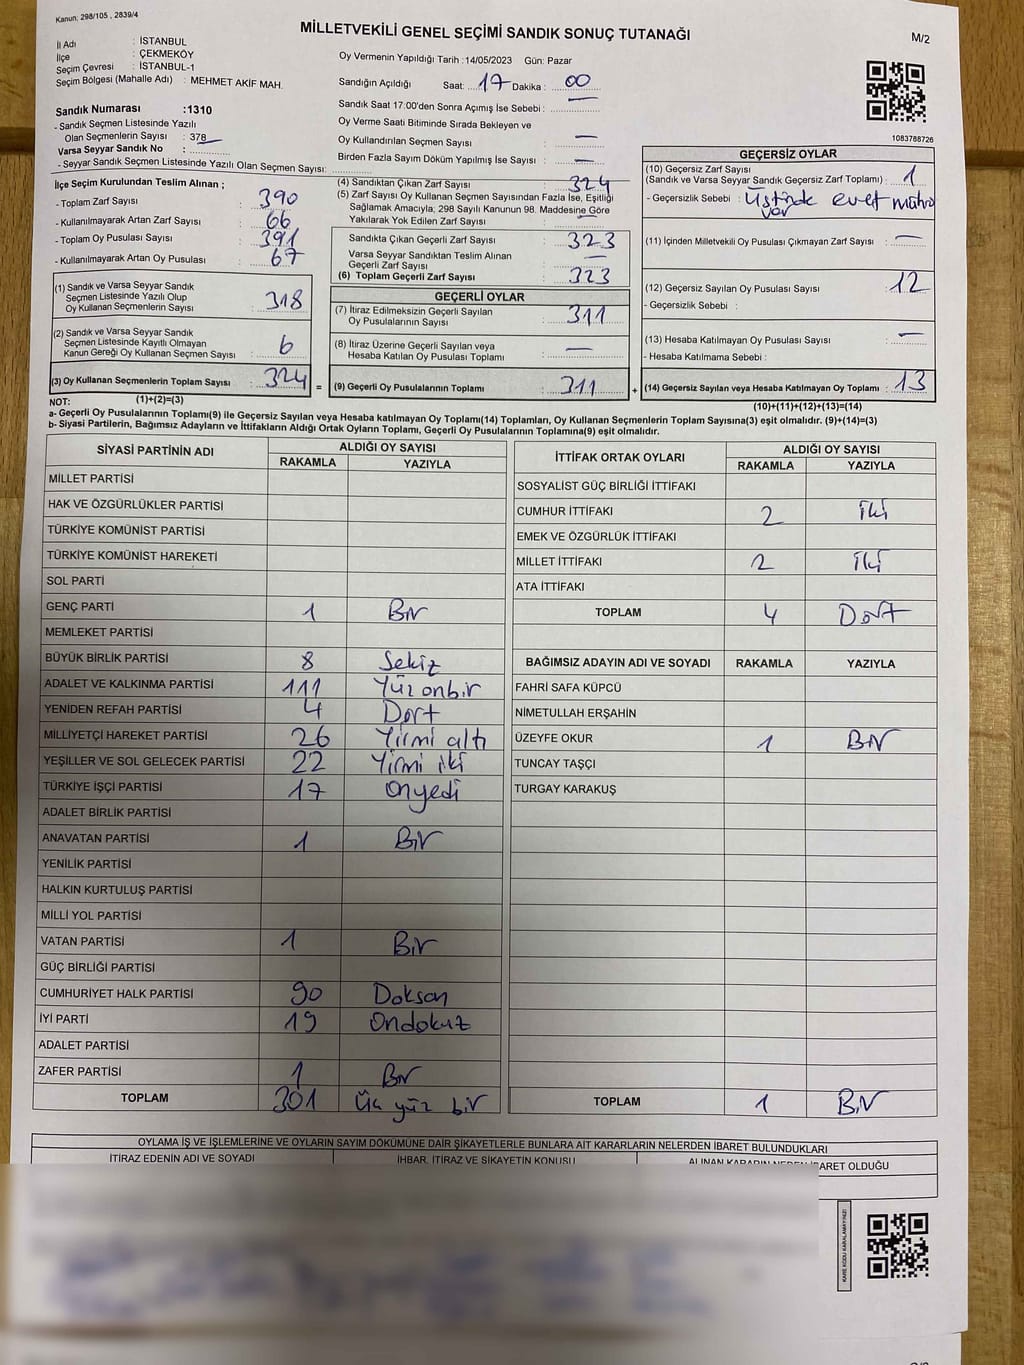 Kanun: 298/105 , 2839/4
MİLLETVEKİLİ GENEL SEÇİMİ SANDIK SONUÇ TUTANAĞI
M/2
İl Adı : İSTANBUL
İlçe : ÇEKMEKÖY
Seçim Çevresi : İSTANBUL-1
Seçim Bölgesi (Mahalle Adı) : MEHMET AKİF MAH.
Oy Vermenin Yapıldığı Tarih : 14/05/2023 Gün: Pazar
Sandığın Açıldığı Saat: 17 Dakika : 00
Sandık Saat 17:00'den Sonra Açımış İse Sebebi :
Oy Verme Saati Bitiminde Sırada Bekleyen ve
Oy Kullandırılan Seçmen Sayısı : —
Birden Fazla Sayım Döküm Yapılmış İse Sayısı : —
1083788726
Sandık Numarası :1310
- Sandık Seçmen Listesinde Yazılı
Olan Seçmenlerin Sayısı : 378
Varsa Seyyar Sandık No :
- Seyyar Sandık Seçmen Listesinde Yazılı Olan Seçmen Sayısı:
İlçe Seçim Kurulundan Teslim Alınan ;
- Toplam Zarf Sayısı : 390
- Kullanılmayarak Artan Zarf Sayısı : 66
- Toplam Oy Pusulası Sayısı : 391
- Kullanılmayarak Artan Oy Pusulası : 67
(1) Sandık ve Varsa Seyyar Sandık
Seçmen Listesinde Yazılı Olup
Oy Kullanan Seçmenlerin Sayısı : 318
(2) Sandık ve Varsa Seyyar Sandık
Seçmen Listesinde Kayıtlı Olmayan
Kanun Gereği Oy Kullanan Seçmen Sayısı : 6
(3) Oy Kullanan Seçmenlerin Toplam Sayısı : 324 =
(4) Sandıktan Çıkan Zarf Sayısı : 324
(5) Zarf Sayısı Oy Kullanan Seçmen Sayısından Fazla İse, Eşitliği
Sağlamak Amacıyla, 298 Sayılı Kanunun 98. Maddesine Göre
Yakılarak Yok Edilen Zarf Sayısı : —
Sandıkta Çıkan Geçerli Zarf Sayısı : 323
Varsa Seyyar Sandıktan Teslim Alınan
Geçerli Zarf Sayısı : —
(6) Toplam Geçerli Zarf Sayısı : 323
GEÇERLİ OYLAR
(7) İtiraz Edilmeksizin Geçerli Sayılan
Oy Pusulalarının Sayısı : 311
(8) İtiraz Üzerine Geçerli Sayılan veya
Hesaba Katılan Oy Pusulası Toplamı : —
(9) Geçerli Oy Pusulalarının Toplamı : 311 +
GEÇERSİZ OYLAR
(10) Geçersiz Zarf Sayısı
(Sandık ve Varsa Seyyar Sandık Geçersiz Zarf Toplamı) : 1
- Geçersizlik Sebebi : Üstünde evet mührü
var
(11) İçinden Milletvekili Oy Pusulası Çıkmayan Zarf Sayısı : —
(12) Geçersiz Sayılan Oy Pusulası Sayısı : 12
- Geçersizlik Sebebi :
(13) Hesaba Katılmayan Oy Pusulası Sayısı : —
- Hesaba Katılmama Sebebi :
(14) Geçersiz Sayılan veya Hesaba Katılmayan Oy Toplamı : 13
NOT: (1)+(2)=(3)
(10)+(11)+(12)+(13)=(14)
a- Geçerli Oy Pusulalarının Toplamı(9) ile Geçersiz Sayılan veya Hesaba katılmayan Oy Toplamı(14) Toplamları, Oy Kullanan Seçmenlerin Toplam Sayısına(3) eşit olmalıdır. (9)+(14)=(3)
b- Siyasi Partilerin, Bağımsız Adayların ve İttifakların Aldığı Ortak Oyların Toplamı, Geçerli Oy Pusulalarının Toplamına(9) eşit olmalıdır.
SİYASİ PARTİNİN ADI
ALDIĞI OY SAYISI
RAKAMLA YAZIYLA
MİLLET PARTİSİ
HAK VE ÖZGÜRLÜKLER PARTİSİ
TÜRKİYE KOMÜNİST PARTİSİ
TÜRKİYE KOMÜNİST HAREKETİ
SOL PARTİ
GENÇ PARTİ 1 Bir
MEMLEKET PARTİSİ
BÜYÜK BİRLİK PARTİSİ 8 Sekiz
ADALET VE KALKINMA PARTİSİ 111 Yüz onbir
YENİDEN REFAH PARTİSİ 4 Dört
MİLLİYETÇİ HAREKET PARTİSİ 26 Yirmi altı
YEŞİLLER VE SOL GELECEK PARTİSİ 22 Yirmi iki
TÜRKİYE İŞÇİ PARTİSİ 17 Onyedi
ADALET BİRLİK PARTİSİ
ANAVATAN PARTİSİ 1 Bir
YENİLİK PARTİSİ
HALKIN KURTULUŞ PARTİSİ
MİLLİ YOL PARTİSİ
VATAN PARTİSİ 1 Bir
GÜÇ BİRLİĞİ PARTİSİ
CUMHURİYET HALK PARTİSİ 90 Doksan
İYİ PARTİ 19 Ondokuz
ADALET PARTİSİ
ZAFER PARTİSİ 1 Bir
TOPLAM 301 Üç yüz bir
İTTİFAK ORTAK OYLARI
ALDIĞI OY SAYISI
RAKAMLA YAZIYLA
SOSYALİST GÜÇ BİRLİĞİ İTTİFAKI
CUMHUR İTTİFAKI 2 İki
EMEK VE ÖZGÜRLÜK İTTİFAKI
MİLLET İTTİFAKI 2 İki
ATA İTTİFAKI
TOPLAM 4 Dört
BAĞIMSIZ ADAYIN ADI VE SOYADI RAKAMLA YAZIYLA
FAHRİ SAFA KÜPCÜ
NİMETULLAH ERŞAHİN
ÜZEYFE OKUR 1 Bir
TUNCAY TAŞÇI
TURGAY KARAKUŞ
TOPLAM 1 Bir
OYLAMA İŞ VE İŞLEMLERİNE VE OYLARIN SAYIM DÖKÜMÜNE DAİR ŞİKAYETLERLE BUNLARA AİT KARARLARIN NELERDEN İBARET BULUNDUKLARI
İTİRAZ EDENİN ADI VE SOYADI
İHBAR, İTİRAZ VE ŞİKAYETİN KONUSU
ALINAN KARARIN NEDEN İBARET OLDUĞU
KARE KODU KARALAMAYINIZ!